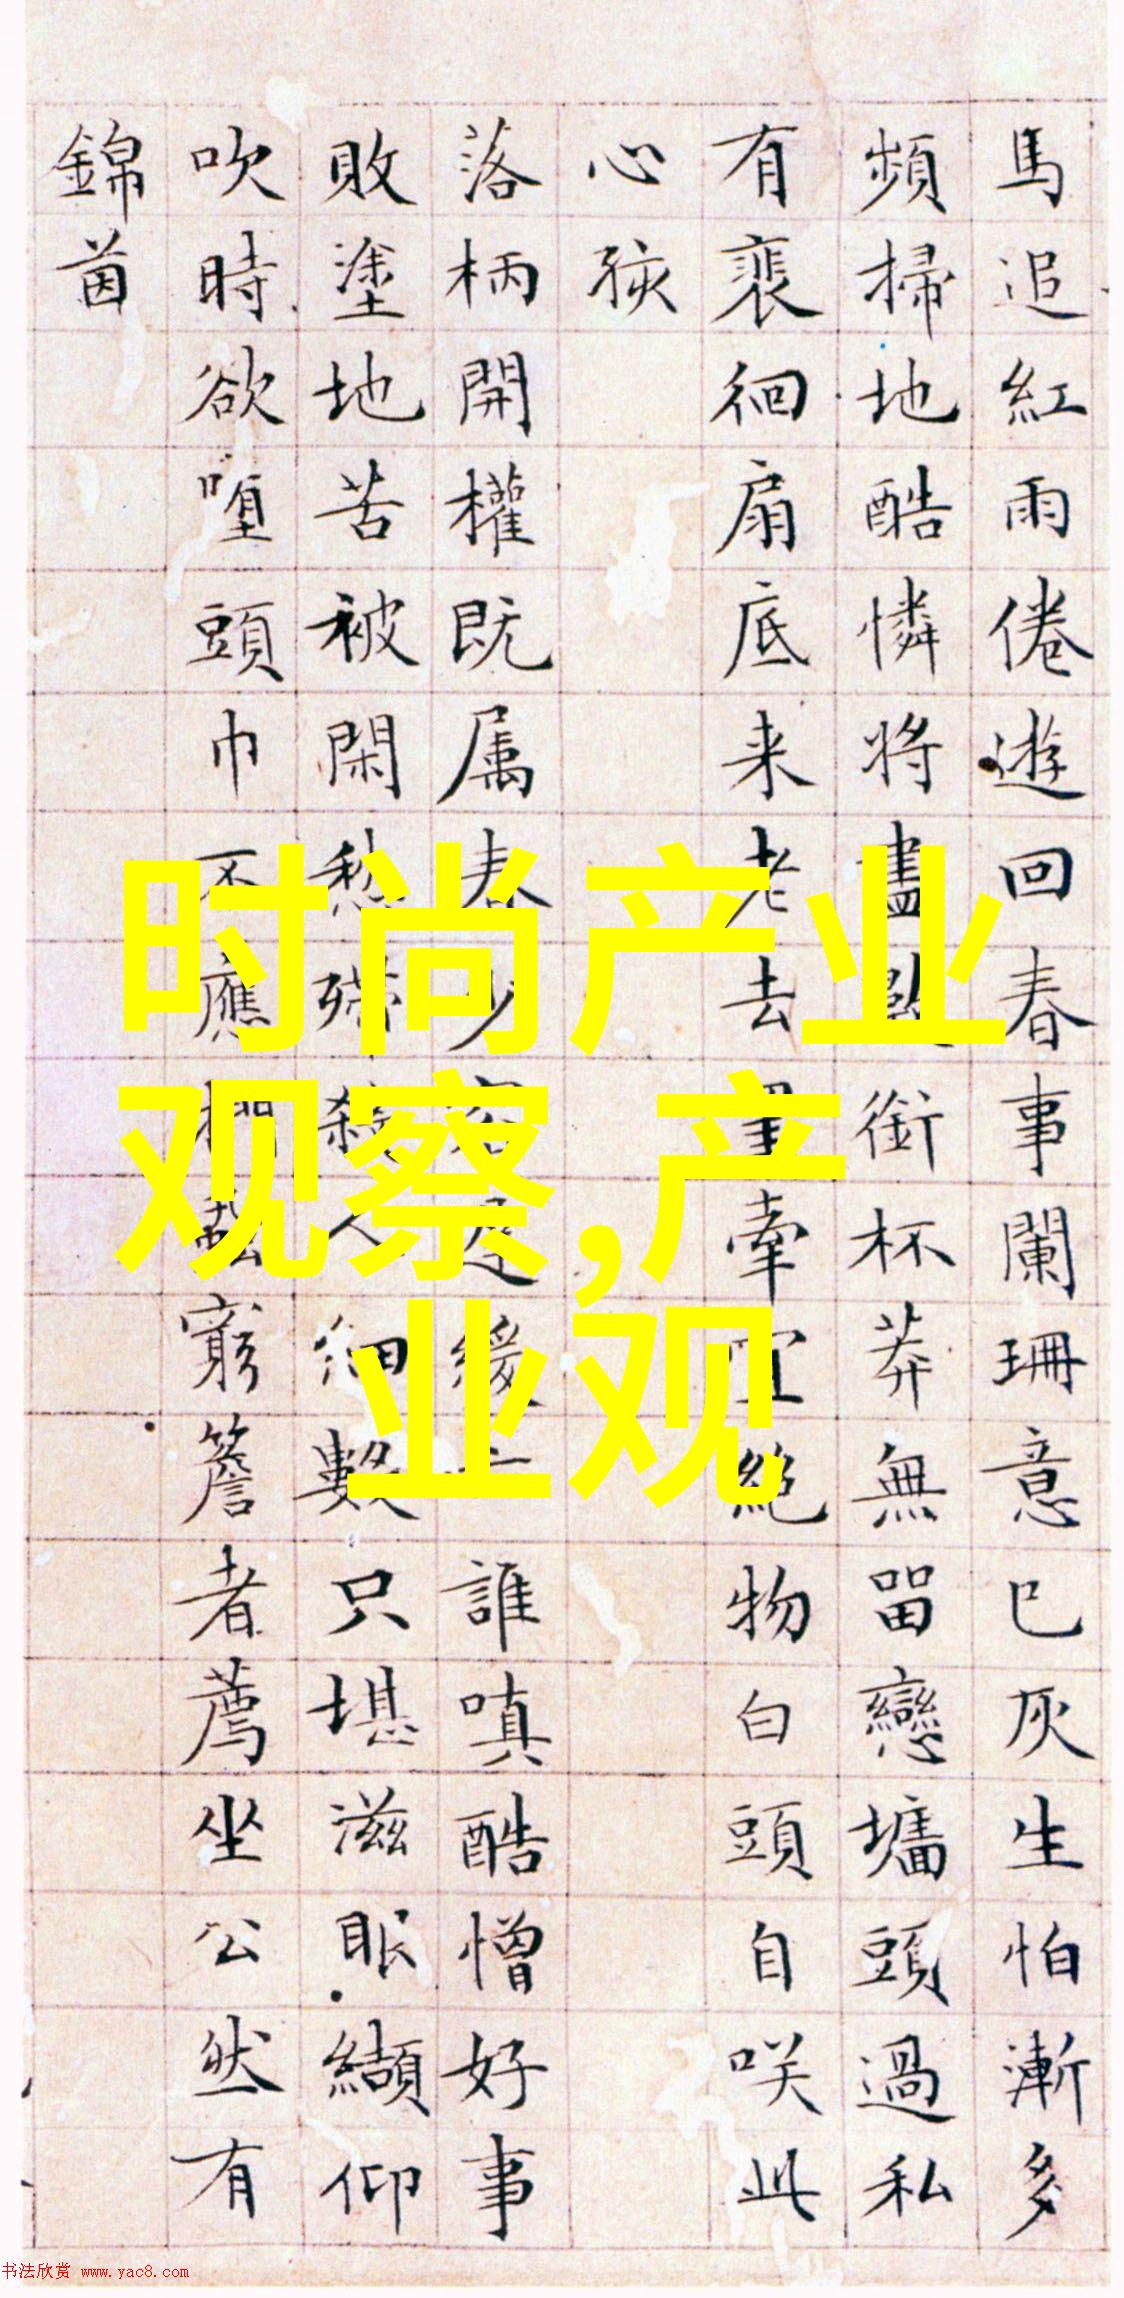 馬追紅雨倦遊回春事闌珊意已灰生怕漸多
頻掃地酷憐將盡銜杯莽無畱戀墻頭過私
有裴徊扇底来老去牽宜絕物白頭自咲此
心孩
落柄開權既属春少緩誰嗔酷憎好事
敗塗地苦被閑愁殢殺人細數只堪滋眼纈仰
吹時欲墮頭巾不應窮簷者薦坐公然有
錦茵
时尚产业
观察,产
业观
书法欣赏 www.yac8.com